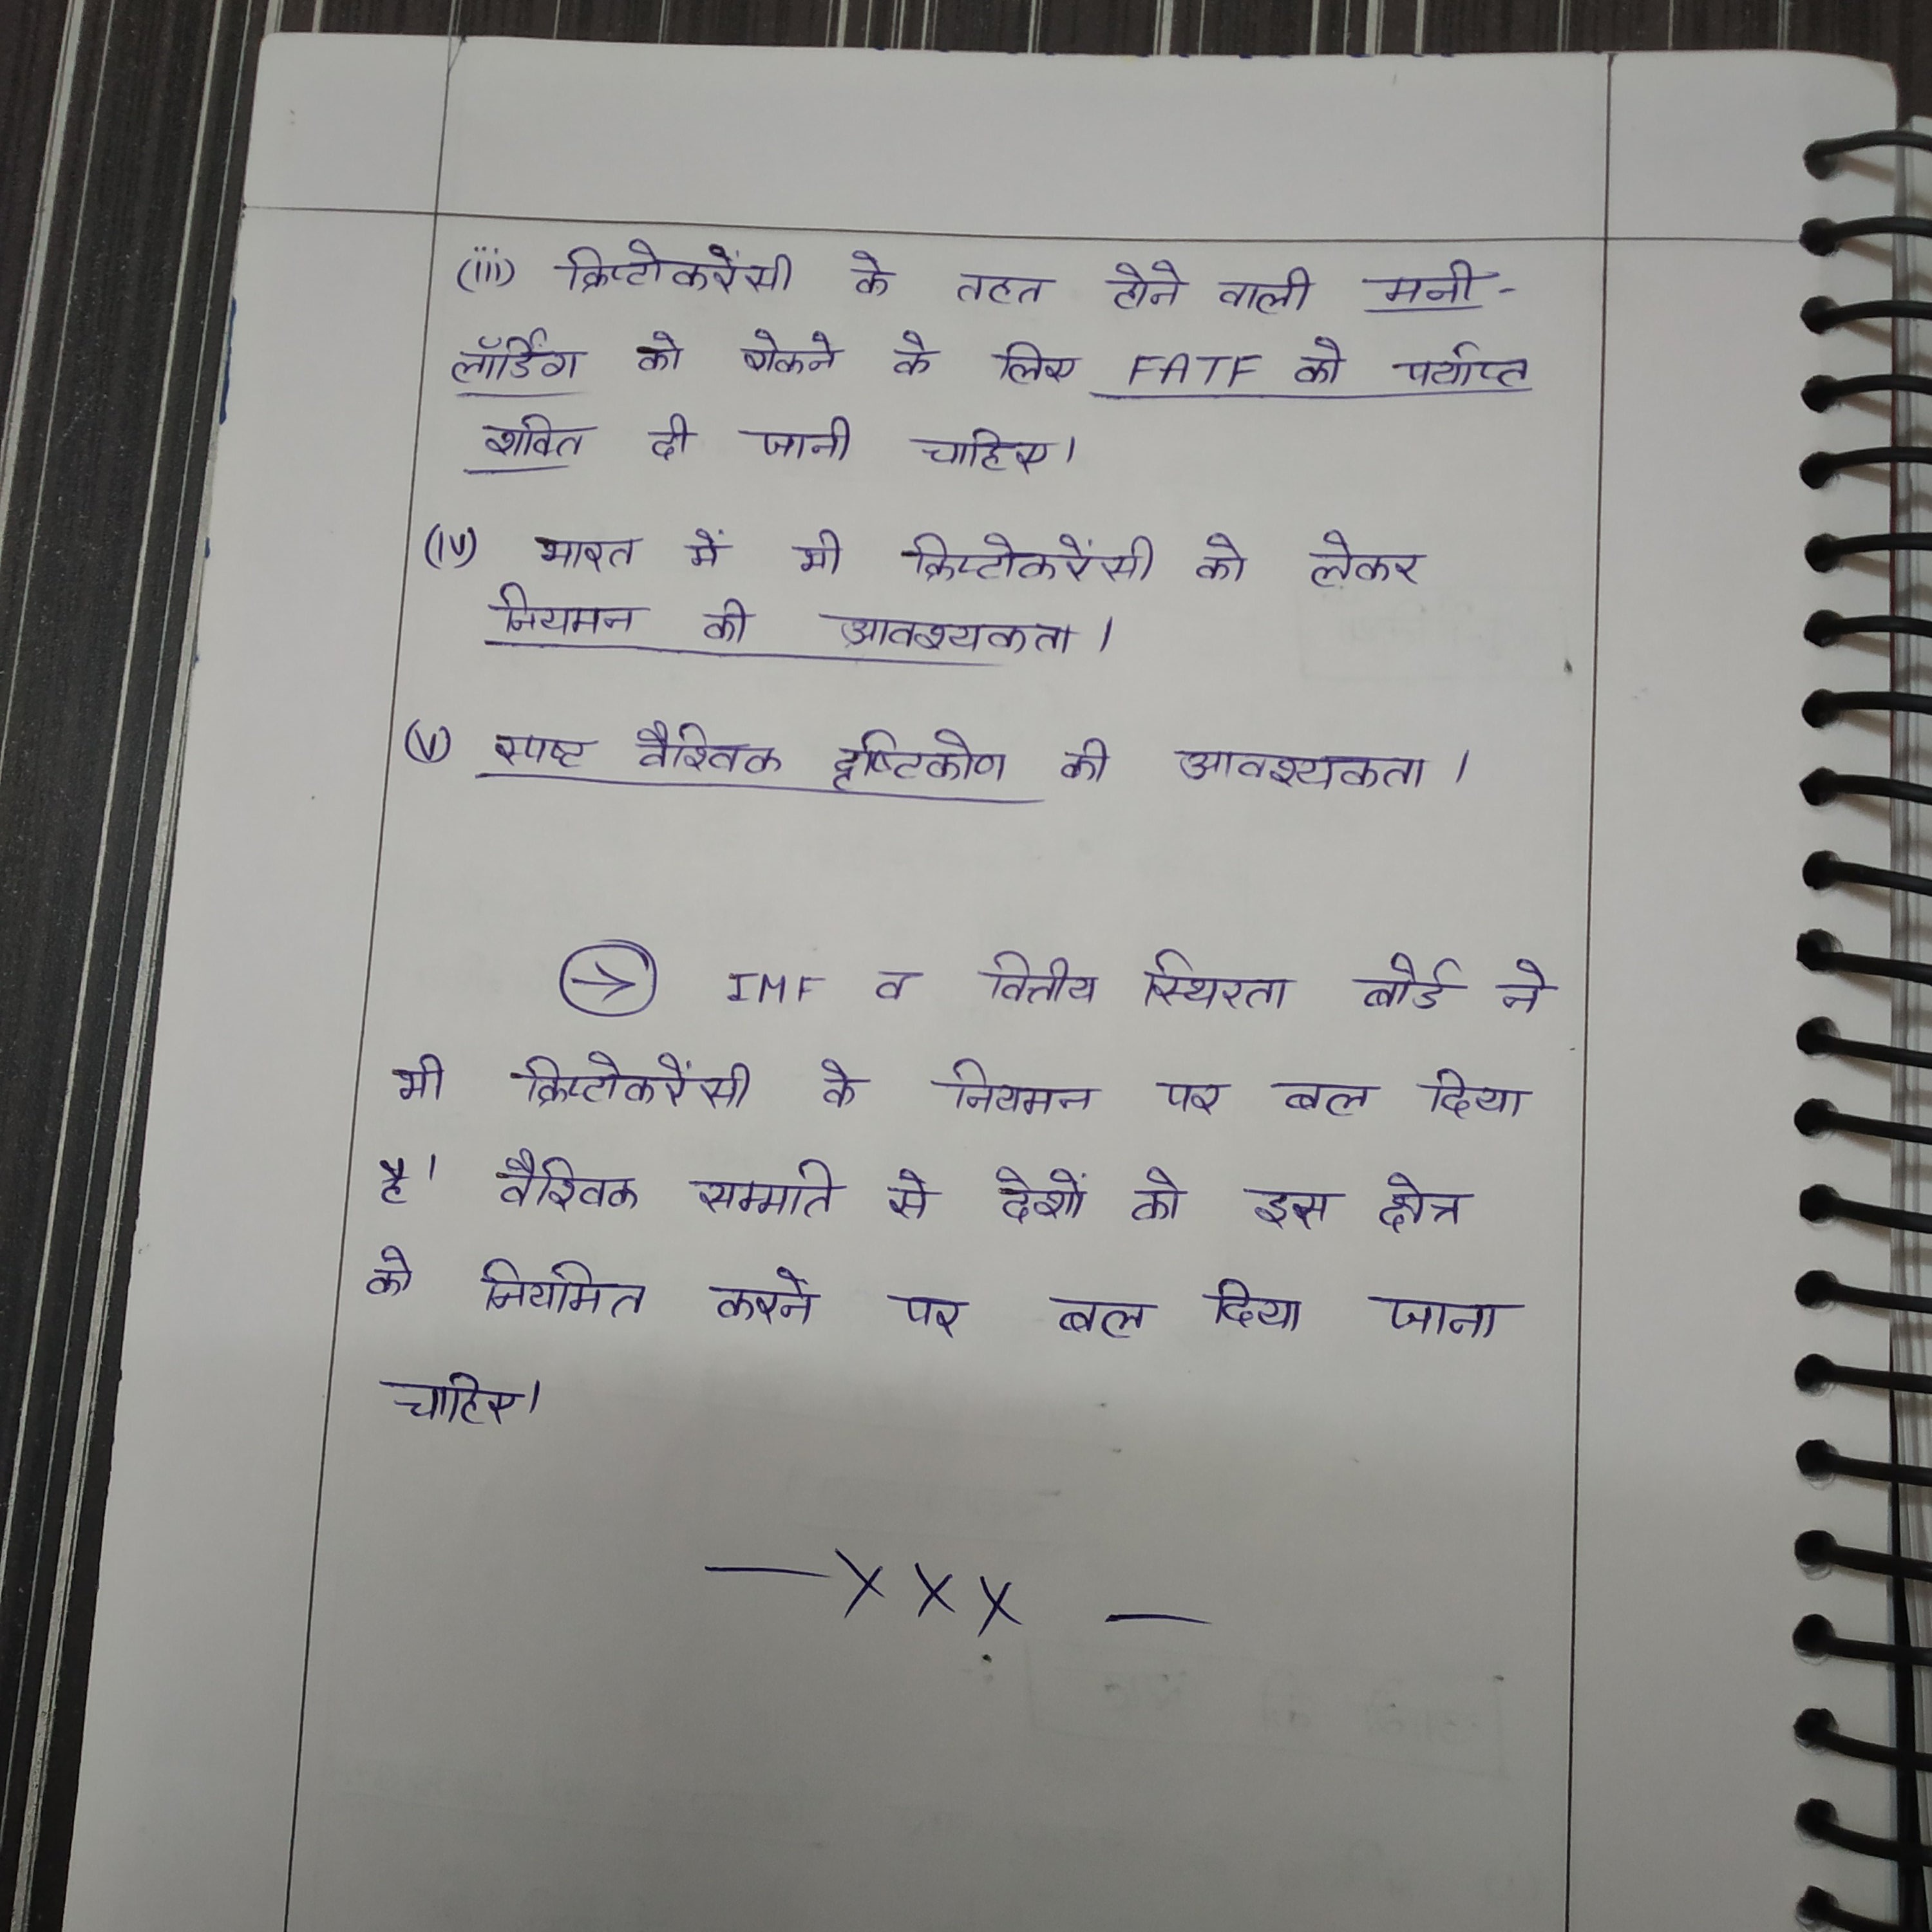 (iii) क्रिप्टोकरेंसी के तहत होने वाली मनी-
लॉर्डिंग को रोकने के लिए FATF को पर्याप्त
शक्ति दी जानी चाहिए।
(iv) भारत में भी क्रिप्टोकरेंसी को लेकर
नियमन की आवश्यकता।
(v) स्पष्ट वैश्विक दृष्टिकोण की आवश्यकता।
→ IMF व वित्तीय स्थिरता बोर्ड ने
भी क्रिप्टोकरेंसी के नियमन पर बल दिया
है। वैश्विक सम्मति से देशों को इस क्षेत्र
को नियमित करने पर बल दिया जाना
चाहिए।
—xxx—